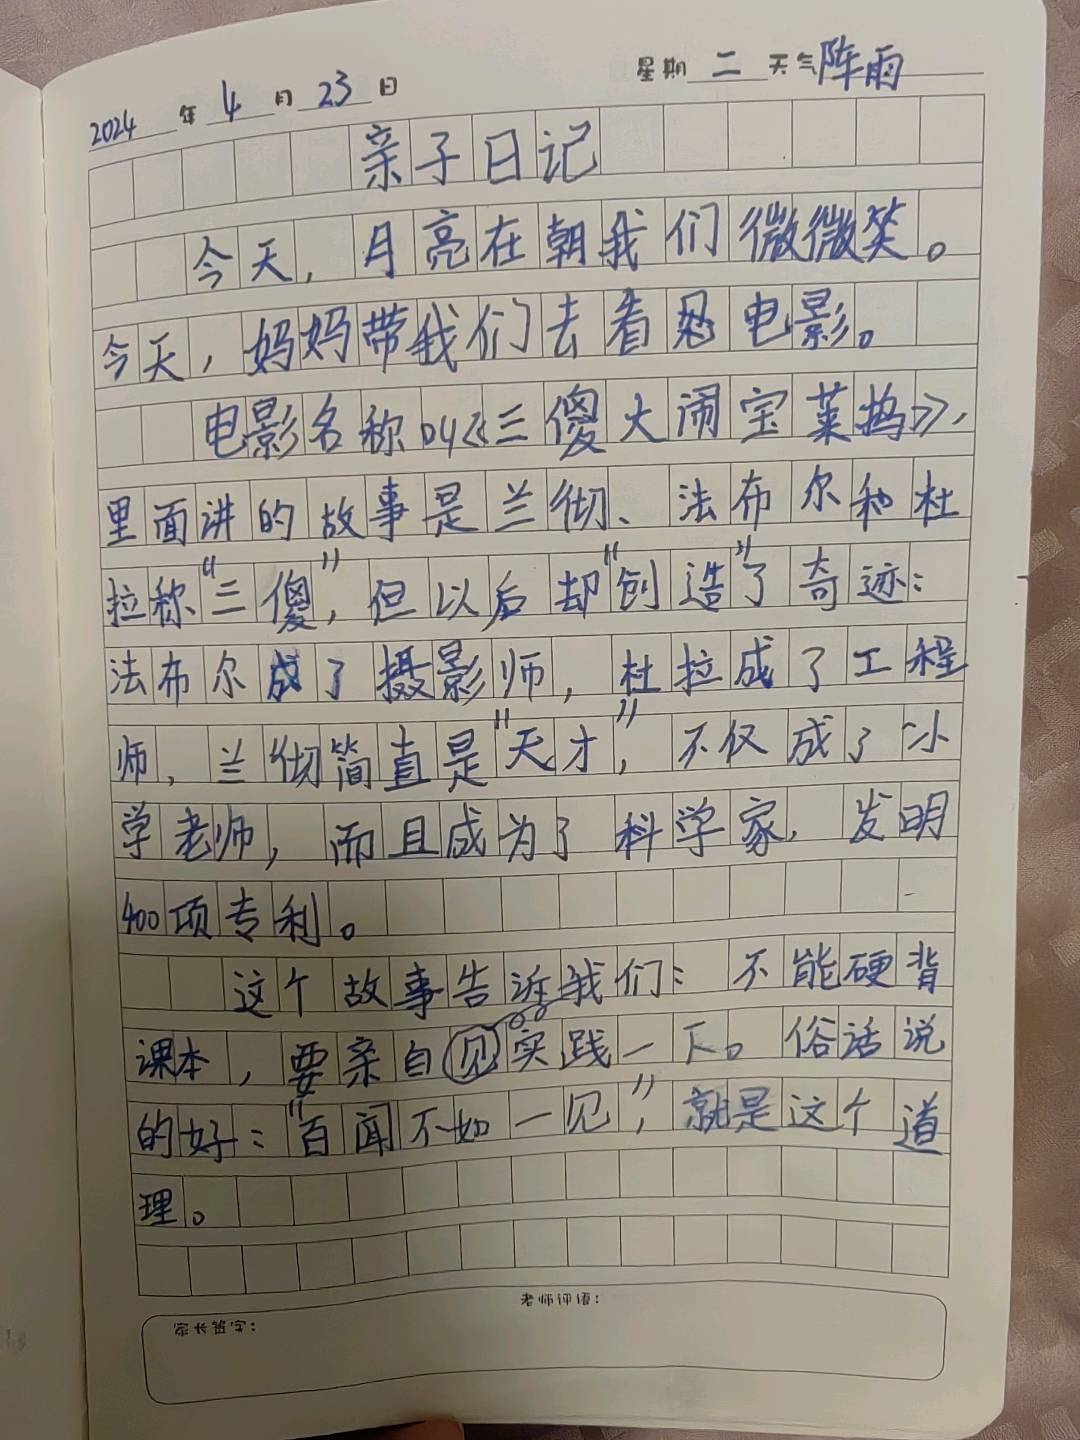 2024年4月23日 星期二 天气阵雨
亲子日记
今天,月亮在朝我们微微笑。
今天,妈妈带我们去看 电影。
电影名称叫《三傻大闹宝莱坞》,
里面讲的故事是兰彻、法布尔和杜
拉称“三傻”,但以后却“创造”了奇迹:
法布尔成了摄影师,杜拉成了工程
师,兰彻简直是“天才”,不仅成了小
学老师,而且成为了科学家,发明
400项专利。
这个故事告诉我们:不能硬背
课本,要亲自实践一下。俗话说
的好:“百闻不如一见”,就是这个道
理。
老师评语:
家长签字: